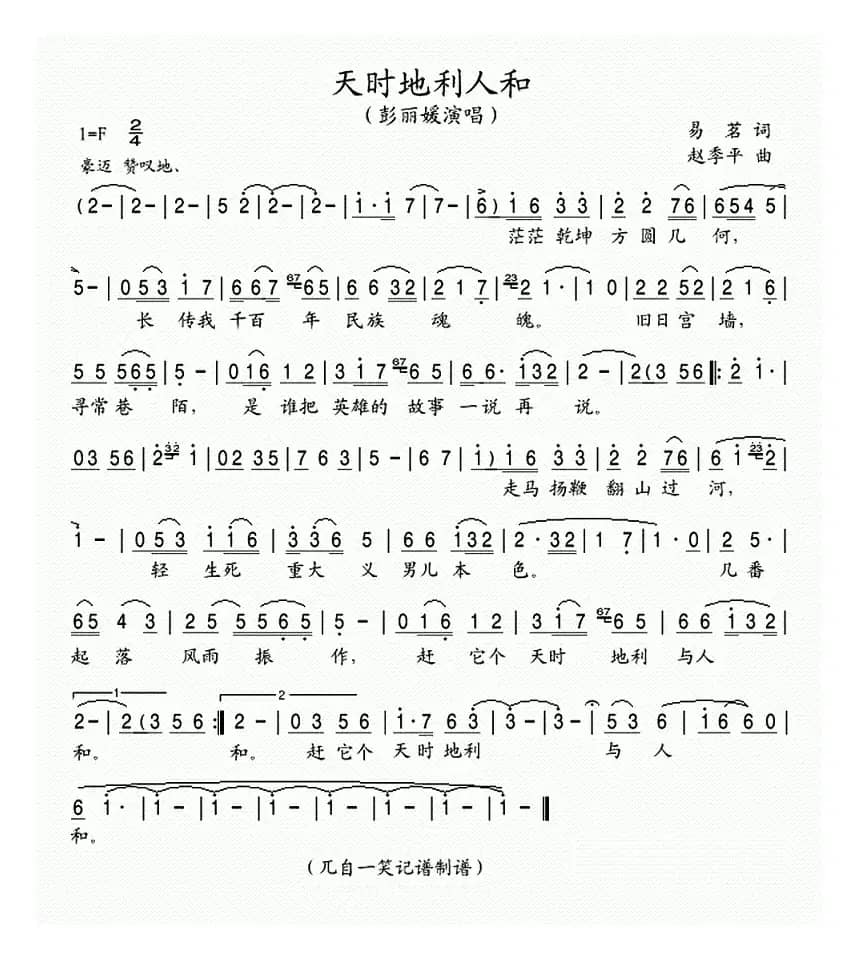 天时地利人和
（彭丽媛演唱）
1=F 2/4
易 茗 词
豪迈 赞叹地、
赵季平 曲
(2-|2-|2-|5 2|2-|2-|1·1 7|7-|6)|1 6 3 3|2 2 76|654 5|
茫茫 乾坤 方 圆 几 何，
5-|053 1 7|667 67 65|6 6 32|2 1 7|23 2 1·|1 0|2 2 52|2 1 6|
长 传我 千百 年 民族 魂 魄。 旧日 宫 墙，
5 5 565|5 -|016 1 2|3 17 67 6 5|6 6· 132|2 -|2(3 56|:2 1·|
寻常 巷 陌， 是 谁把 英雄的 故事 一说 再 说。
03 56|2 32 1|02 35|7 6 3|5 -|6 7|1)|1 6 3 3|2 2 76|6 1 23 2|
走马 扬鞭 翻 山 过 河，
1 -|053 116|336 5|6 6 132|2·32|1 7|1·0|2 5·|
轻 生死 重大 义 男儿 本 色。 几番
65 4 3|25 5565|5 -|016 12|3 17 67 65|66 132|
起 落 风雨 振 作， 赶 它个 天时 地利 与人
1 2
2-|2(3 56:|2-|03 56|1·7 63|3-|3-|53 6|16 60|
和。 和。 赶 它个 天时地利 与 人
6 1·|1-|1-|1-|1-|1-|
和。
（兀自一笑记谱制谱）